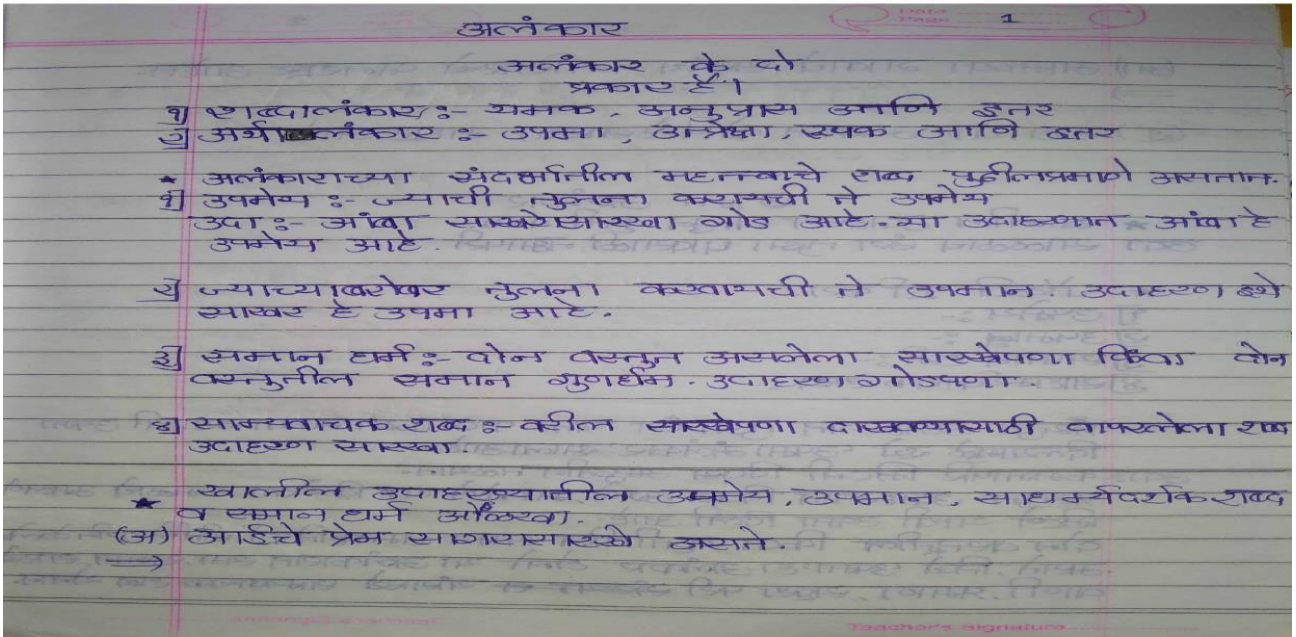 1
अलंकार
अलंकार के दो
प्रकार हैं।
१) शब्दालंकार :- यमक, अनुप्रास आणि इतर
२) अर्थालंकार :- उपमा, उत्प्रेक्षा, रुपक आणि इतर
★ अलंकाराच्या संदर्भातील महत्त्वाचे शब्द पुढीलप्रमाणे असतात.
१] उपमेय :- ज्याची तुलना करायची ते उपमेय
उदा :- आंबा साखरेसारखा गोड आहे. या उदाहरणात आंबा हे
उपमेय आहे.
२] ज्याच्याबरोबर तुलना करवायची ते उपमान. उदाहरण इथे
साखर हे उपमा आहे.
३] समान धर्म :- दोन वस्तुत असलेला सारखेपणा किंवा दोन
वस्तुतील समान गुणधर्म. उदाहरण गोडपणा.
४] साम्यवाचक शब्द :- वरील सारखेपणा दाखवण्यासाठी वापरलेला शब्द
उदाहरण सारखा.
★ खालील उदाहरण्यातील उपमेय, उपमान, साधर्म्यदर्शक शब्द
व समान धर्म ओळखा.
(अ) आईचे प्रेम सागरासारखे असते.
→
Teacher's Signature